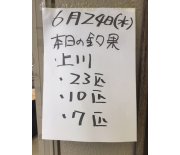 6月24日(水)
本日の釣果
・上川
・23匹
・10匹
・7匹